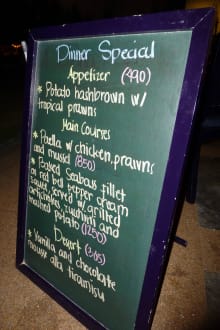 Dinner Special
Appetizer (490)
* Potato hashbrown w/
tropical prawns
Main Courses
* Paella w/ chicken, prawns
and mussel (850)
* Poached Seabass fillet
w/ red bell pepper cream
sauce, served w/ grilled
zucchini and
mashed potato (1250)
Desert (365)
* Vanilla and chocolate
mousse alla tiramisu